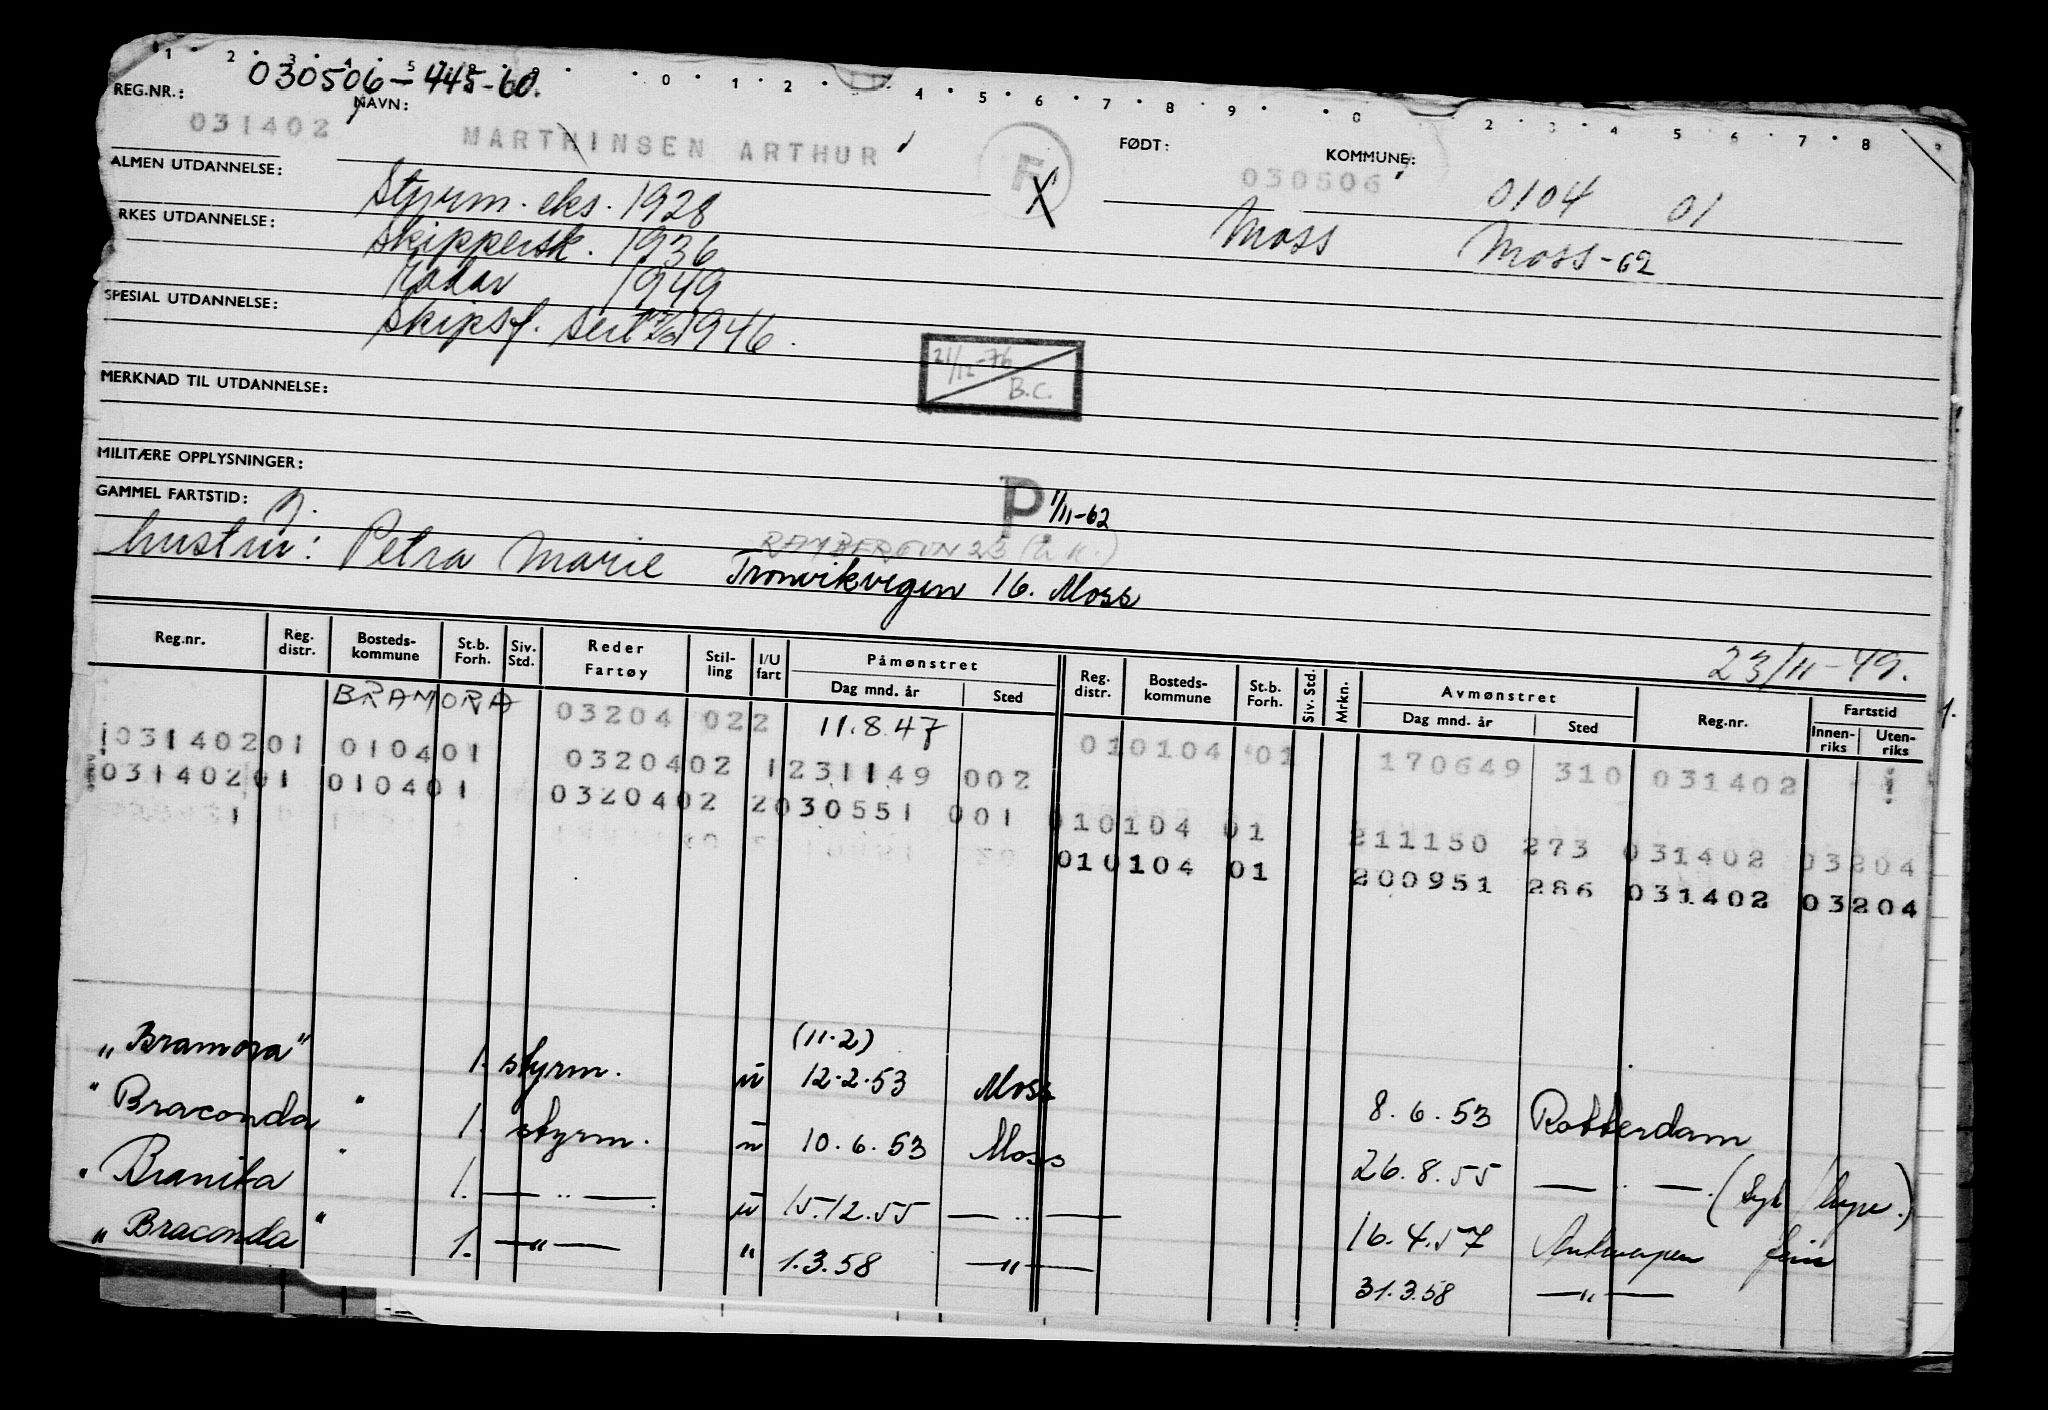 1 2 3 4 5 0 1 2 4 5 6 7 8 9 0 2 3 4 5 6 7 8 9
REG.NR.: 030506-445-60.
031402 NAVN: MARTHINSEN ARTHUR F X FØDT: 030506 KOMMUNE: 0104 01
ALMEN UTDANNELSE: Styrm. eks. 1928 Moss Moss-62
YRKES UTDANNELSE: Skippersk. 1936
Radar 1949
SPESIAL UTDANNELSE: Skipsf. sert 1946.
21/12-76 B.C.
MERKNAD TIL UTDANNELSE:
MILITÆRE OPPLYSNINGER:
P 1/11-62
GAMMEL FARTSTID:
hustru: Petra Marie
Tronvikvegen 16. Moss
23/11-49.
Reg.nr. Reg. distr. Bosteds-kommune St.b. Forh. Siv. Std. Reder Fartøy Stil-ling I/U fart Påmønstret Dag mnd. år Sted Reg. distr. Bosteds-kommune St.b. Forh. Siv. Std. Mrkn. Avmønstret Dag mnd. år Sted Reg.nr. Fartstid Innen-riks Uten-riks
BRAMORA 03204 022 11.8.47 010104 01 170649 310 031402 1.
03140201 010401 0320402 1231149 002 010104 01 211150 273 031402 03204
03140201 010401 0320402 2030551 001 010104 01 200951 286 031402 03204
(11-2)
„Bramora" 1. styrm. u 12.2.53 Moss 8.6.53 Rotterdam
" Braconda " 1. styrm. u 10.6.53 Moss 26.8.55 — " —
" Branita " 1. — " — u 15.12.55 — " — 16.4.57 Antwerpen ferie
„ Braconda " 1. — " — " 1.3.58 — " — 31.3.58 — " —